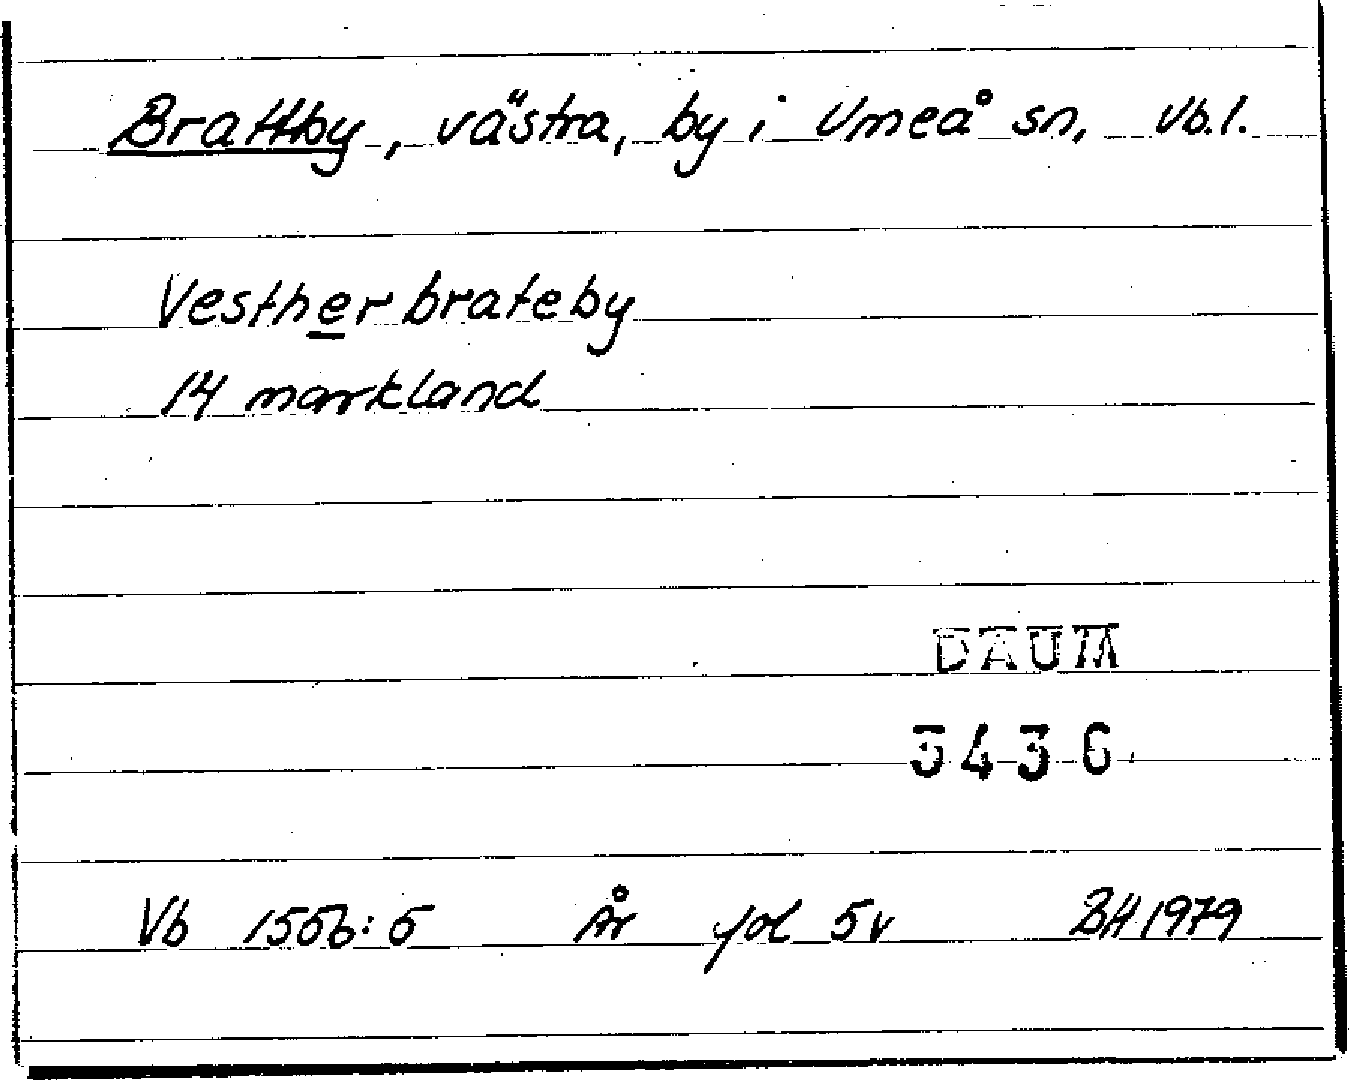 Brattby, västra, by i Umeå sn, Vb.l.
Vestherbrateby
14 markland
DAUM
3436
Vb 1556:6 År fol 5v BH 1979